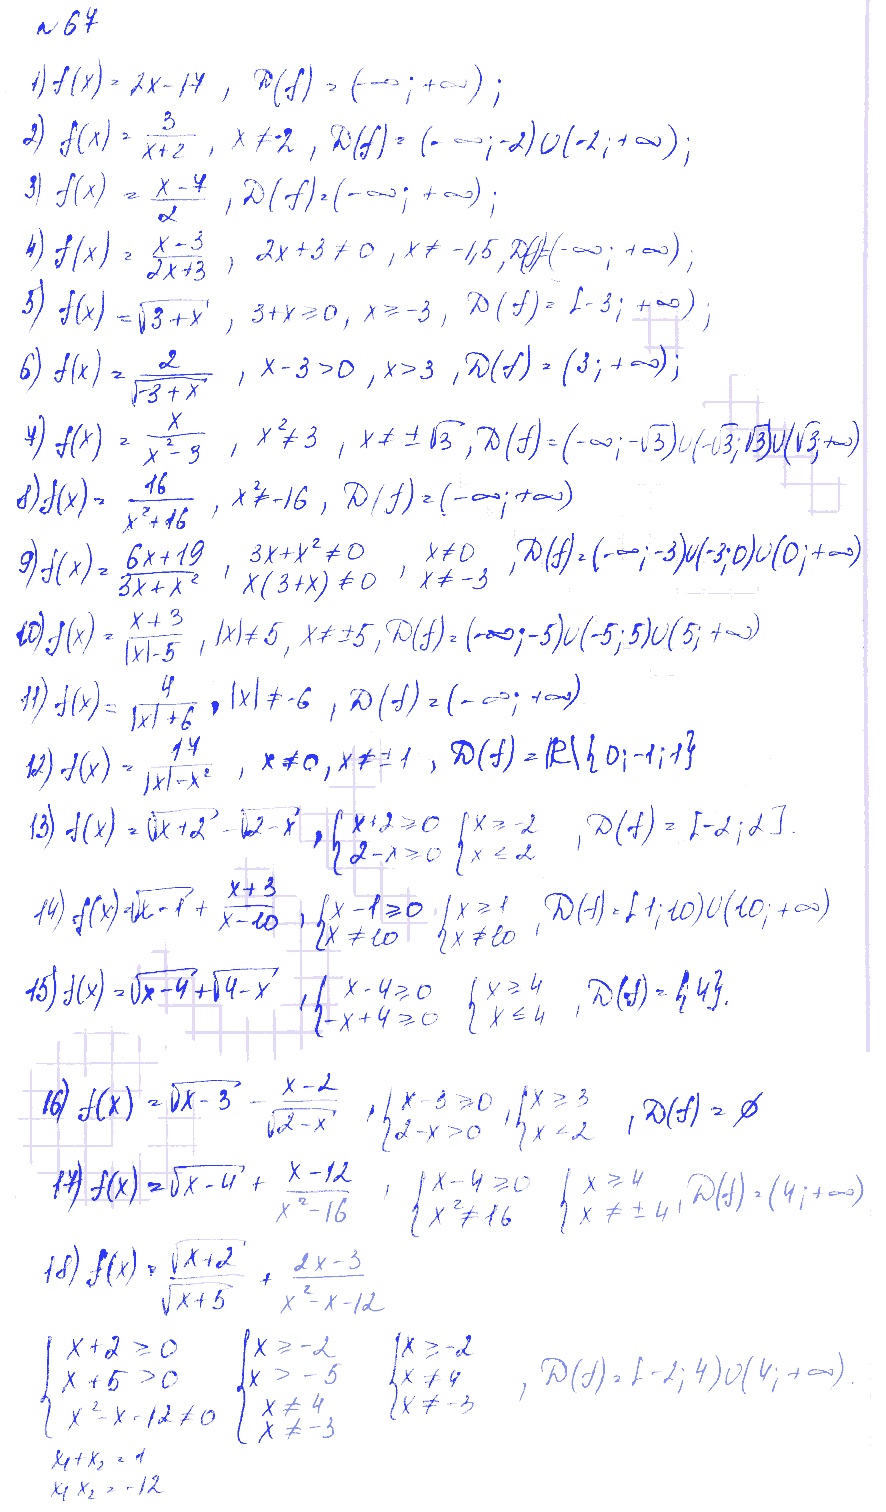 № 67
1) f(x) = 2x - 17, D(f) = (-∞; +∞);
2) f(x) = 3/(x+2), x ≠ -2, D(f) = (-∞; -2)∪(-2; +∞);
3) f(x) = (x-7)/2, D(f) = (-∞; +∞);
4) f(x) = (x-3)/(2x+3), 2x+3 ≠ 0, x ≠ -1,5, D(f)=(-∞; +∞);
5) f(x) = √(3+x), 3+x ≥ 0, x ≥ -3, D(f) = [-3; +∞);
6) f(x) = 2/√(-3+x), x-3 > 0, x > 3, D(f) = (3; +∞);
7) f(x) = x/(x²-3), x² ≠ 3, x ≠ ±√3, D(f) = (-∞; -√3)∪(-√3; √3)∪(√3; +∞)
8) f(x) = 16/(x²+16), x² ≠ -16, D(f) = (-∞; +∞)
9) f(x) = (6x+19)/(3x+x²), 3x+x² ≠ 0, x(3+x) ≠ 0, x ≠ 0, x ≠ -3, D(f) = (-∞; -3)∪(-3; 0)∪(0; +∞)
10) f(x) = (x+3)/(|x|-5), |x| ≠ 5, x ≠ ±5, D(f) = (-∞; -5)∪(-5; 5)∪(5; +∞)
11) f(x) = 4/(|x|+6), |x| ≠ -6, D(f) = (-∞; +∞)
12) f(x) = 17/(|x|-x²), x ≠ 0, x ≠ ±1, D(f) = R\{0; -1; 1}
13) f(x) = √(x+2) - √(2-x), { x+2 ≥ 0 2-x ≥ 0 { x ≥ -2 x ≤ 2, D(f) = [-2; 2].
14) f(x) = √(x-1) + (x+3)/(x-10), { x-1 ≥ 0 x ≠ 10 { x ≥ 1 x ≠ 10, D(f) = [1; 10)∪(10; +∞)
15) f(x) = √(x-4) + √(4-x), { x-4 ≥ 0 -x+4 ≥ 0 { x ≥ 4 x ≤ 4, D(f) = {4}.
16) f(x) = √(x-3) - (x-2)/√(2-x), { x-3 ≥ 0 2-x > 0, { x ≥ 3 x < 2, D(f) = ∅
17) f(x) = √(x-4) + (x-12)/(x²-16), { x-4 ≥ 0 x² ≠ 16 { x ≥ 4 x ≠ ±4, D(f) = (4; +∞)
18) f(x) = √(x+2)/√(x+5) + (2x-3)/(x²-x-12)
{ x+2 ≥ 0 { x ≥ -2 { x ≥ -2
x+5 > 0 x > -5 x ≠ 4, D(f) = [-2; 4)∪(4; +∞).
x²-x-12 ≠ 0 x ≠ 4 x ≠ -3
x ≠ -3
x₁+x₂ = 1
x₁x₂ = -12